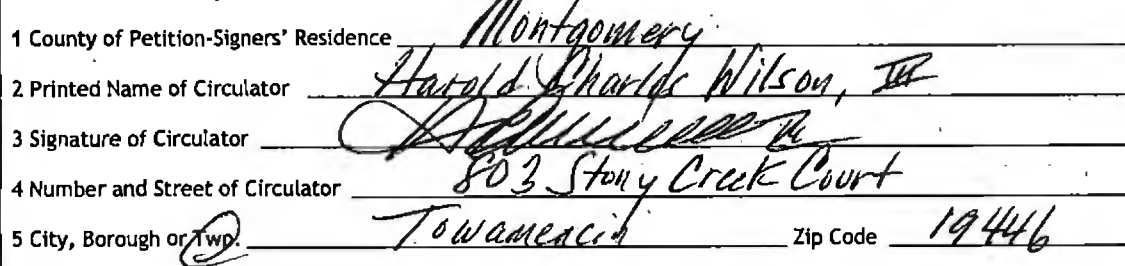 1 County of Petition-Signers' Residence Montgomery
2 Printed Name of Circulator Harold Charles Wilson, III
3 Signature of Circulator
4 Number and Street of Circulator 803 Stony Creek Court
5 City, Borough or Twp. Towamencin Zip Code 19446